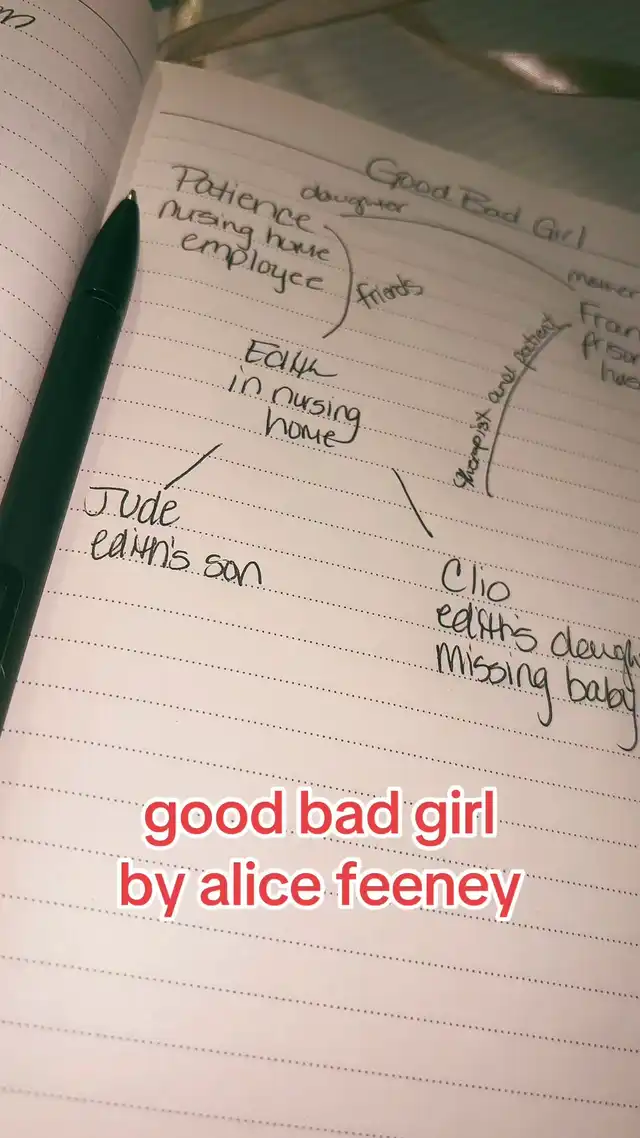 Good Bad Girl
Patience
nursing home
employee
daughter
friends
Edith
in nursing
home
therapist and patient
Jude
edith's son
Clio
edith's
missing baby
good bad girl
by alice feeney